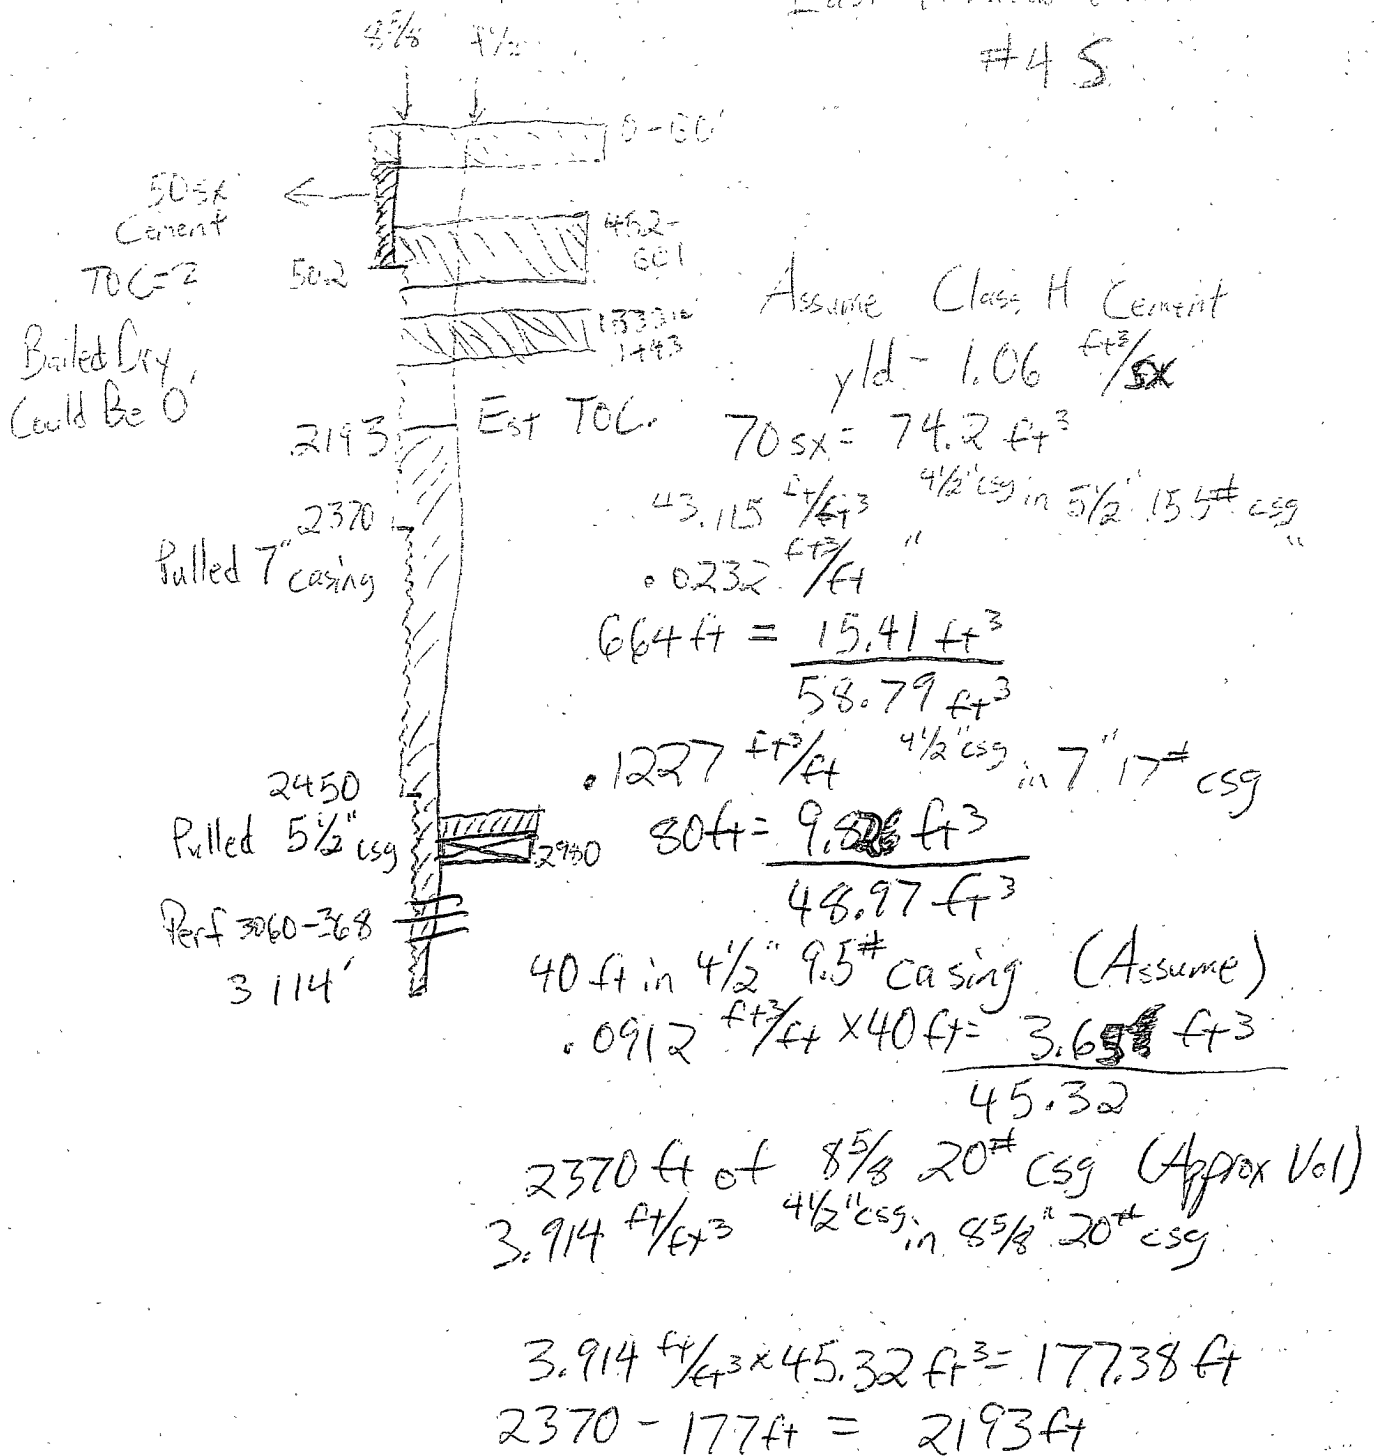 #4 S
8 5/8 4 1/2
0-60'
50sx
Cement
TOC=?
Bailed Dry
Could Be 0'
502
452-
601
1443
Assume Class H Cement
yld - 1.06 ft³/sx
2193 Est TOC. 70 sx = 74.2 ft³
43.115 ft/ft³ 4 1/2" csg in 5 1/2" 15.5# csg
.0232 ft³/ft " "
2370
Pulled 7" casing
664 ft = 15.41 ft³
58.79 ft³
.1227 ft³/ft 4 1/2" csg in 7" 17# csg
2450
Pulled 5 1/2" csg
2980
80ft = 9.82 ft³
48.97 ft³
Perf 3060-368
3114'
40 ft in 4 1/2" 9.5# casing (Assume)
.0912 ft³/ft x 40 ft = 3.65 ft³
45.32
2370 ft of 8 5/8 20# csg (Approx Vol)
3.914 ft/ft³ 4 1/2" csg in 8 5/8" 20# csg
3.914 ft/ft³ x 45.32 ft³ = 177.38 ft
2370 - 177ft = 2193 ft